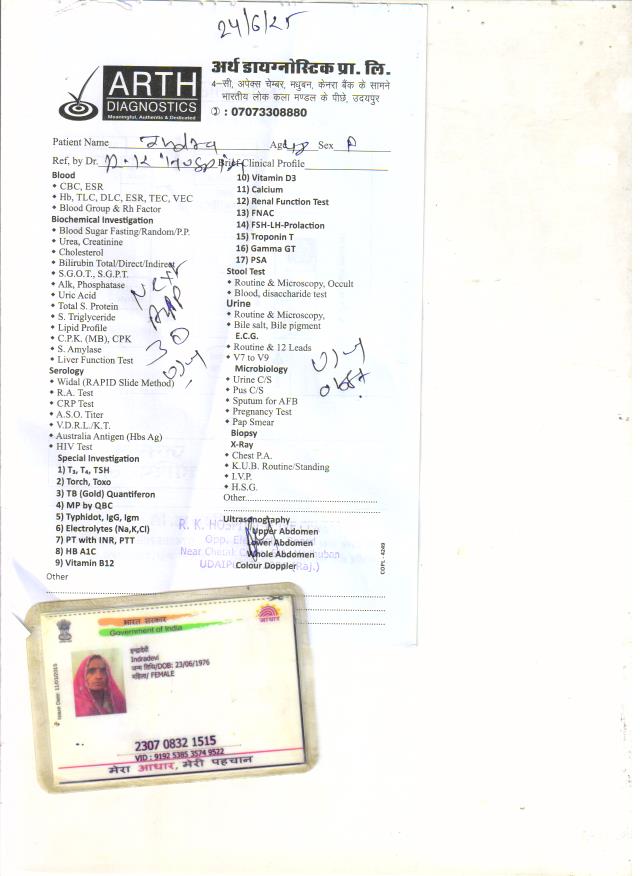 24/6/25
ARTH
DIAGNOSTICS
Meaningful, Authentic & Dedicated
अर्थ डायग्नोस्टिक प्रा. लि.
4–सी, अपेक्स चेम्बर, मधुबन, केनरा बैंक के सामने
भारतीय लोक कला मण्डल के पीछे, उदयपुर
: 07073308880
Patient Name Indra Age Sex
Ref, by Dr. R.K Hospital Brief Clinical Profile
Blood
CBC, ESR
Hb, TLC, DLC, ESR, TEC, VEC
Blood Group & Rh Factor
Biochemical Investigation
Blood Sugar Fasting/Random/P.P.
Urea, Creatinine
Cholesterol
Bilirubin Total/Direct/Indirect
S.G.O.T., S.G.P.T.
Alk, Phosphatase
Uric Acid
Total S. Protein
S. Triglyceride
Lipid Profile
C.P.K. (MB), CPK
S. Amylase
Liver Function Test
Serology
Widal (RAPID Slide Method)
R.A. Test
CRP Test
A.S.O. Titer
V.D.R.L./K.T.
Australia Antigen (Hbs Ag)
HIV Test
Special Investigation
1) T₃, T₄, TSH
2) Torch, Toxo
3) TB (Gold) Quantiferon
4) MP by QBC
5) Typhidot, IgG, Igm
6) Electrolytes (Na,K,Cl)
7) PT with INR, PTT
8) HB A1C
9) Vitamin B12
Other
10) Vitamin D3
11) Calcium
12) Renal Function Test
13) FNAC
14) FSH-LH-Prolaction
15) Troponin T
16) Gamma GT
17) PSA
Stool Test
Routine & Microscopy, Occult
Blood, disaccharide test
Urine
Routine & Microscopy,
Bile salt, Bile pigment
E.C.G.
Routine & 12 Leads
V7 to V9
Microbiology
Urine C/S
Pus C/S
Sputum for AFB
Pregnancy Test
Pap Smear
Biopsy
X-Ray
Chest P.A.
K.U.B. Routine/Standing
I.V.P.
H.S.G.
Other
Ultrasonography
Upper Abdomen
Lower Abdomen
Whole Abdomen
Colour Doppler
R. K. HOSP
Opp.
Near Chetak
UDAIP (Raj.)
COPL - 4249
भारत सरकार
Government of India
आधार
Issue Date: 11/03/2015
इन्द्रादेवी
Indradevi
जन्म तिथि/DOB: 23/06/1976
महिला/ FEMALE
2307 0832 1515
VID : 9192 5385 3574 9522
मेरा आधार, मेरी पहचान